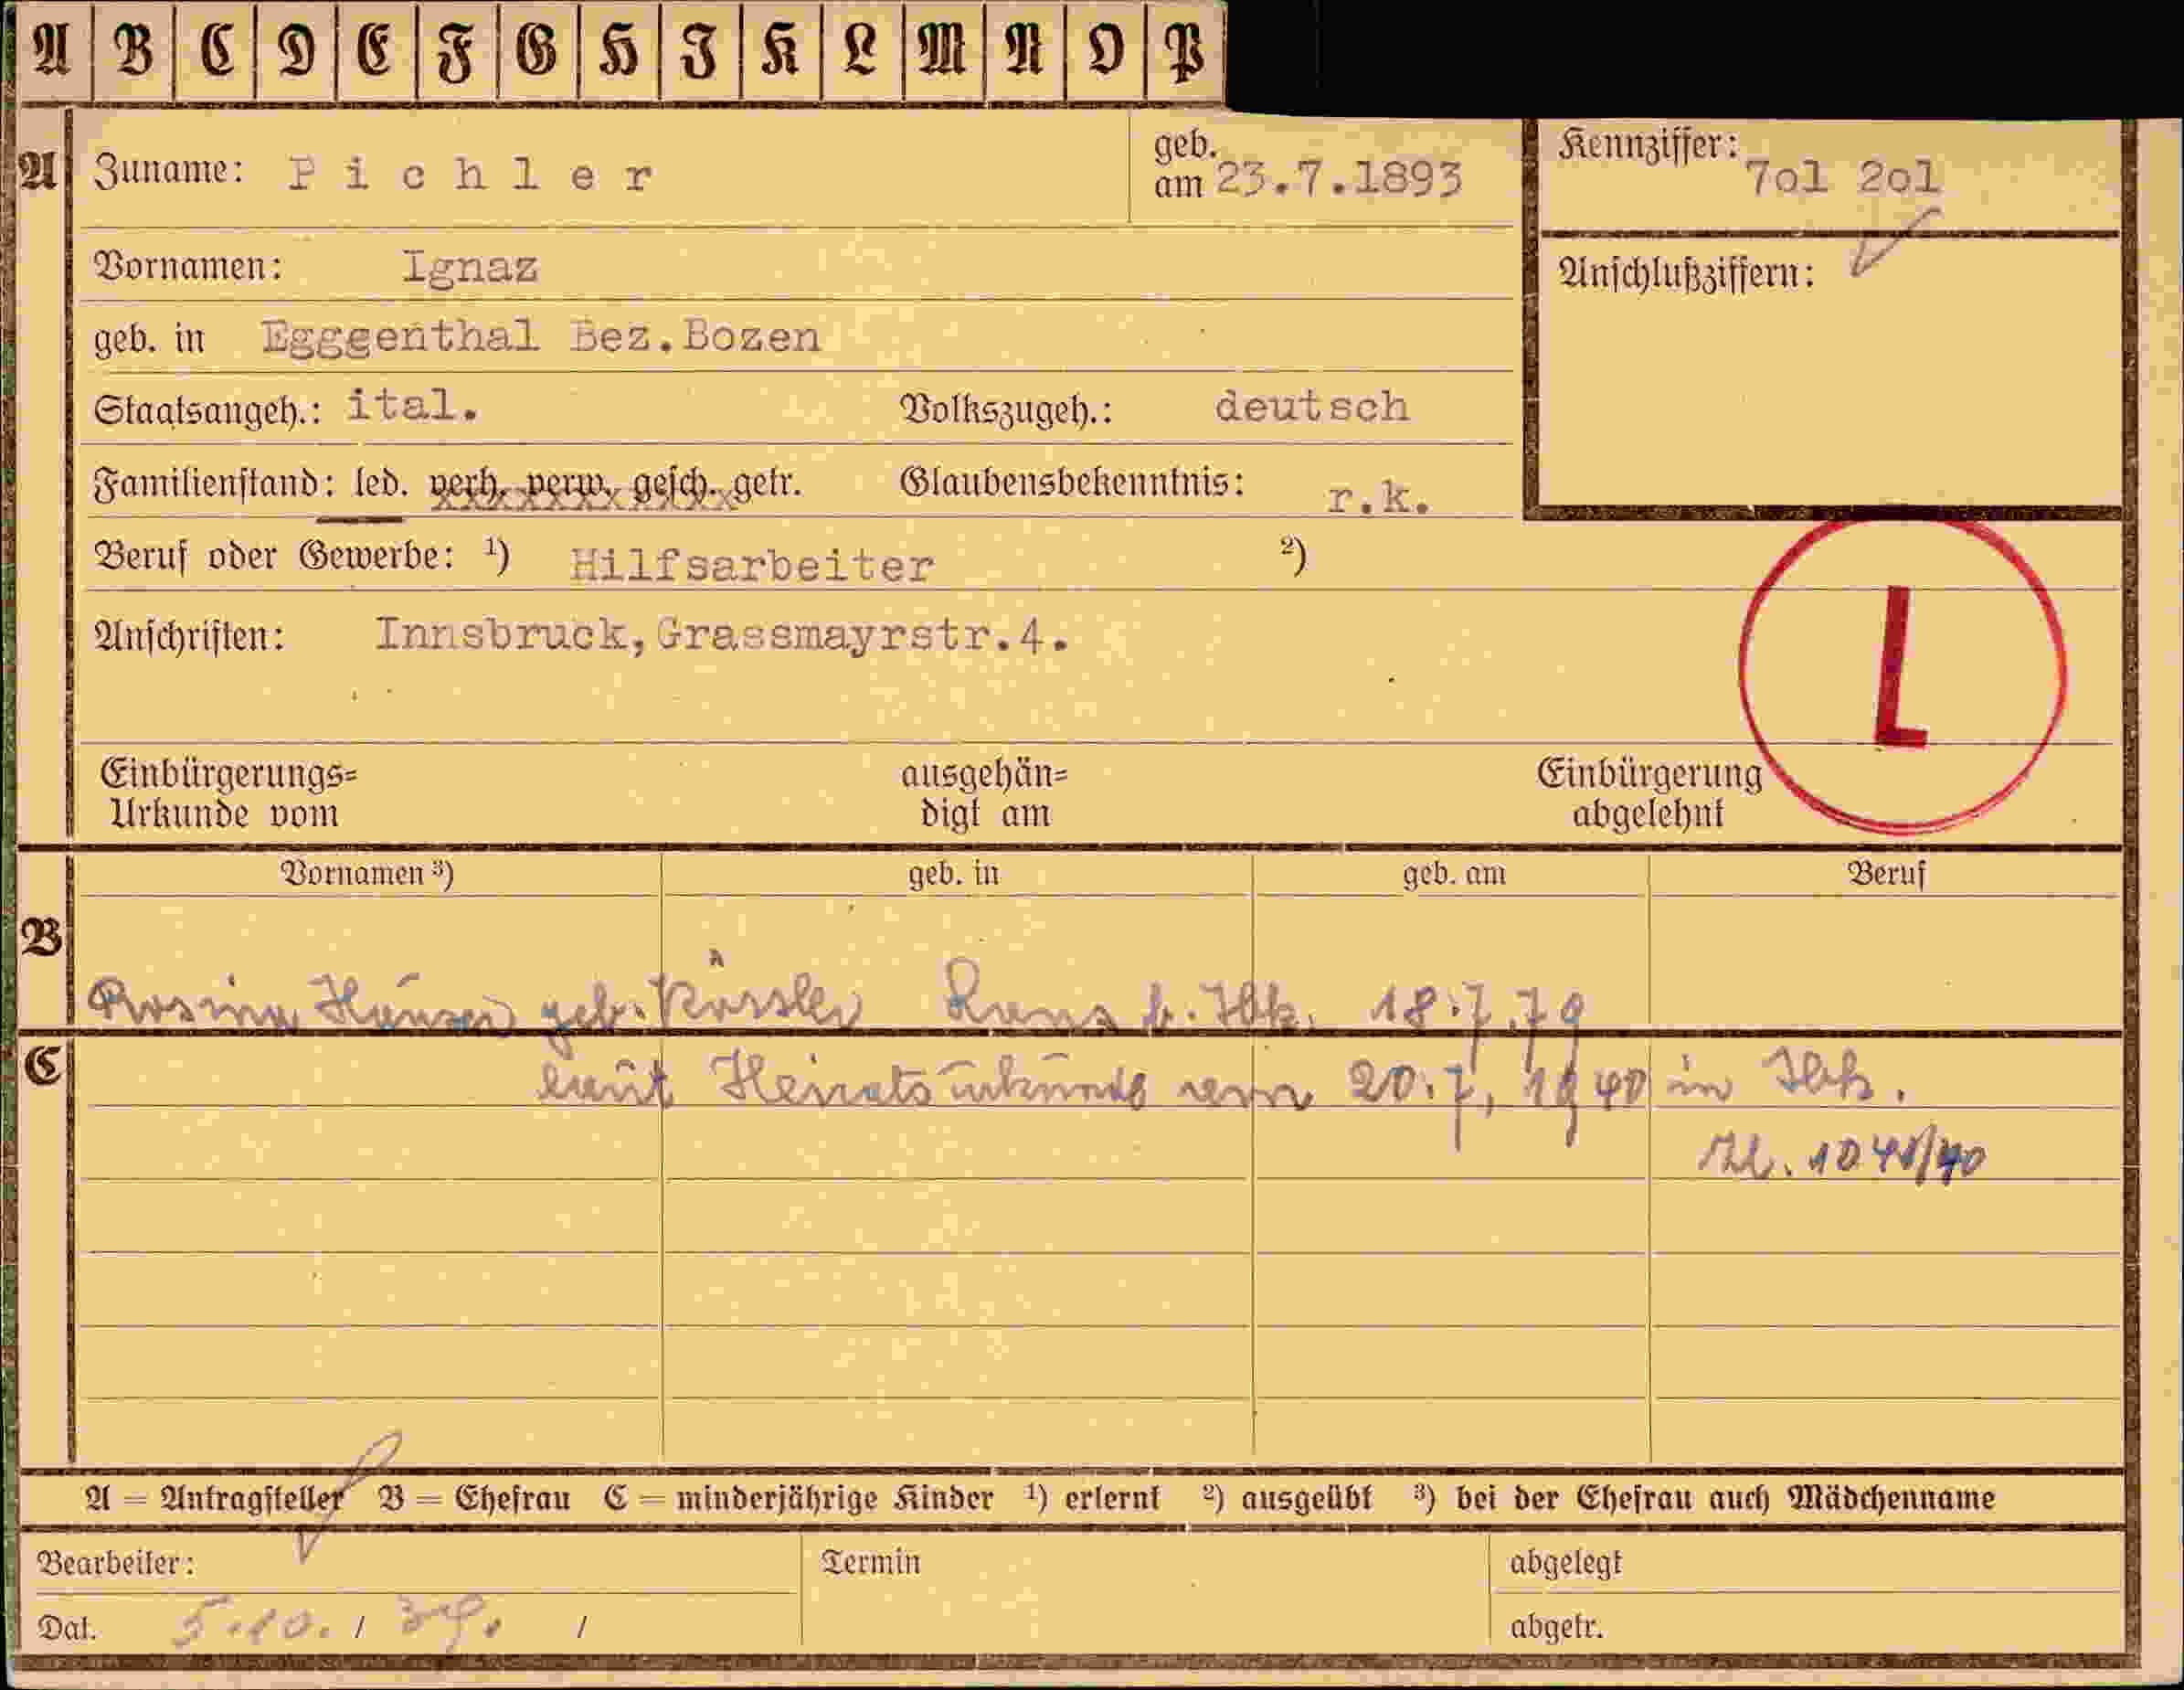 A B C D E F G H I K L M N O P
A Zuname: Pichler geb. am 23.7.1893 Kennziffer: 7ol 2ol
Vornamen: Ignaz Anschlußziffern:
geb. in Egggenthal Bez.Bozen
Staatsangeh.: ital. Volkszugeh.: deutsch
Familienstand: led. verh. verw. gesch. getr. Glaubensbekenntnis: r.k.
Beruf oder Gewerbe: ¹) Hilfsarbeiter ²)
Anschriften: Innsbruck, Grassmayrstr.4.
L
Einbürgerungs= ausgehän= Einbürgerung
Urkunde vom digt am abgelehnt
Vornamen ³) geb. in geb. am Beruf
B
Rosina geb. Kössler Rans b. Ibk. 18.7.79
C laut Heiratsurkunde vom 20.7.1940 in Ibk.
Zl. 1041/40
A = Antragsteller B = Ehefrau C = minderjährige Kinder ¹) erlernt ²) ausgeübt ³) bei der Ehefrau auch Mädchenname
Bearbeiter: Termin abgelegt
Dat. 5.10. / 39. / abgetr.